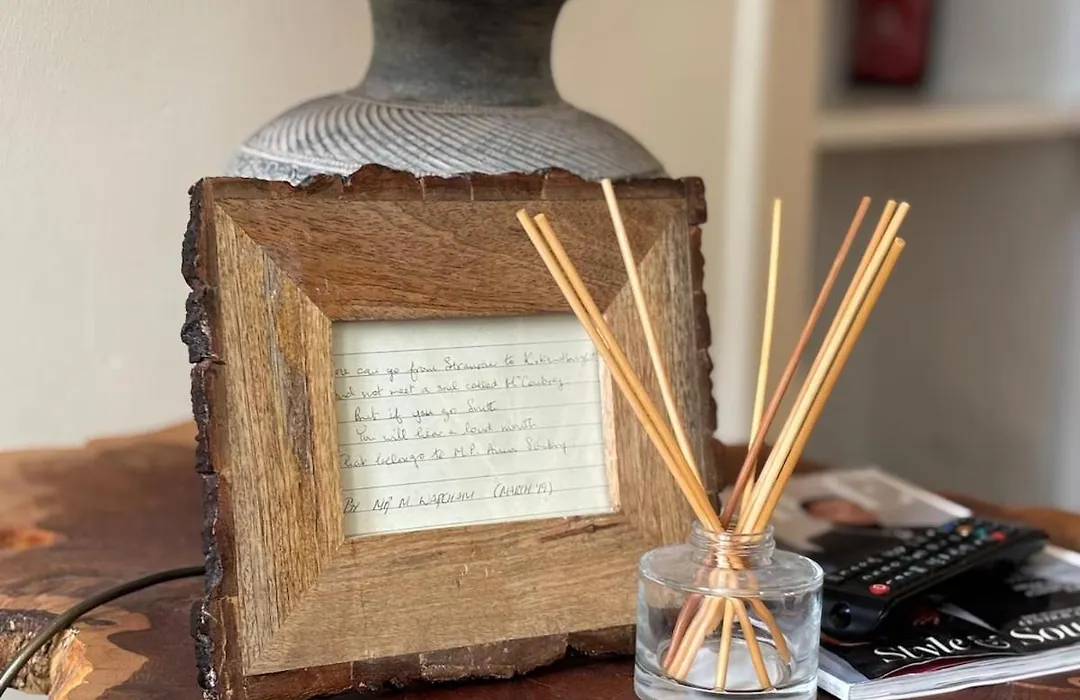 One can go from Stranraer to Kirkcudbright
And not meet a soul called McConkey
But if you go South
You will hear a loud mouth
That belongs to M.P. Anna
By Mrs M WAREHAM (MARCH '19)
Style & Sou